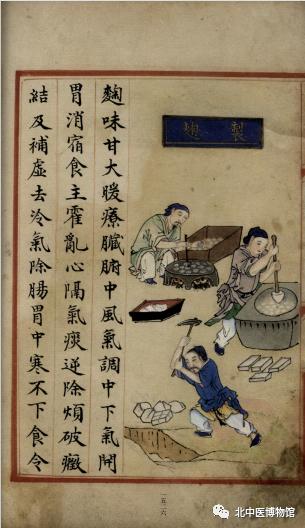 製麴
麴味甘大暖療臟腑中風氣調中下氣開
胃消宿食主霍亂心隔氣痰逆除煩破癥
結及補虛去冷氣除腸胃中寒不下食令
一五二六
北中医博物馆